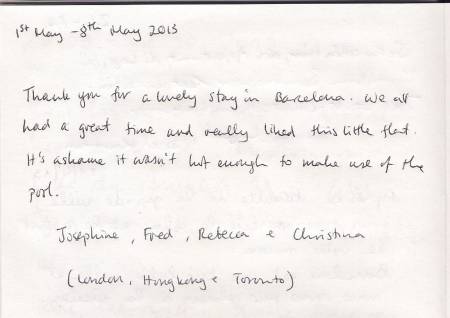 1st May - 8th May 2013
Thank you for a lovely stay in Barcelona. We all
had a great time and really liked this little flat.
It's ashame it wasn't hot enough to make use of the
pool.
Josephine, Fred, Rebecca e Christina
(London, Hongkong e Toronto)